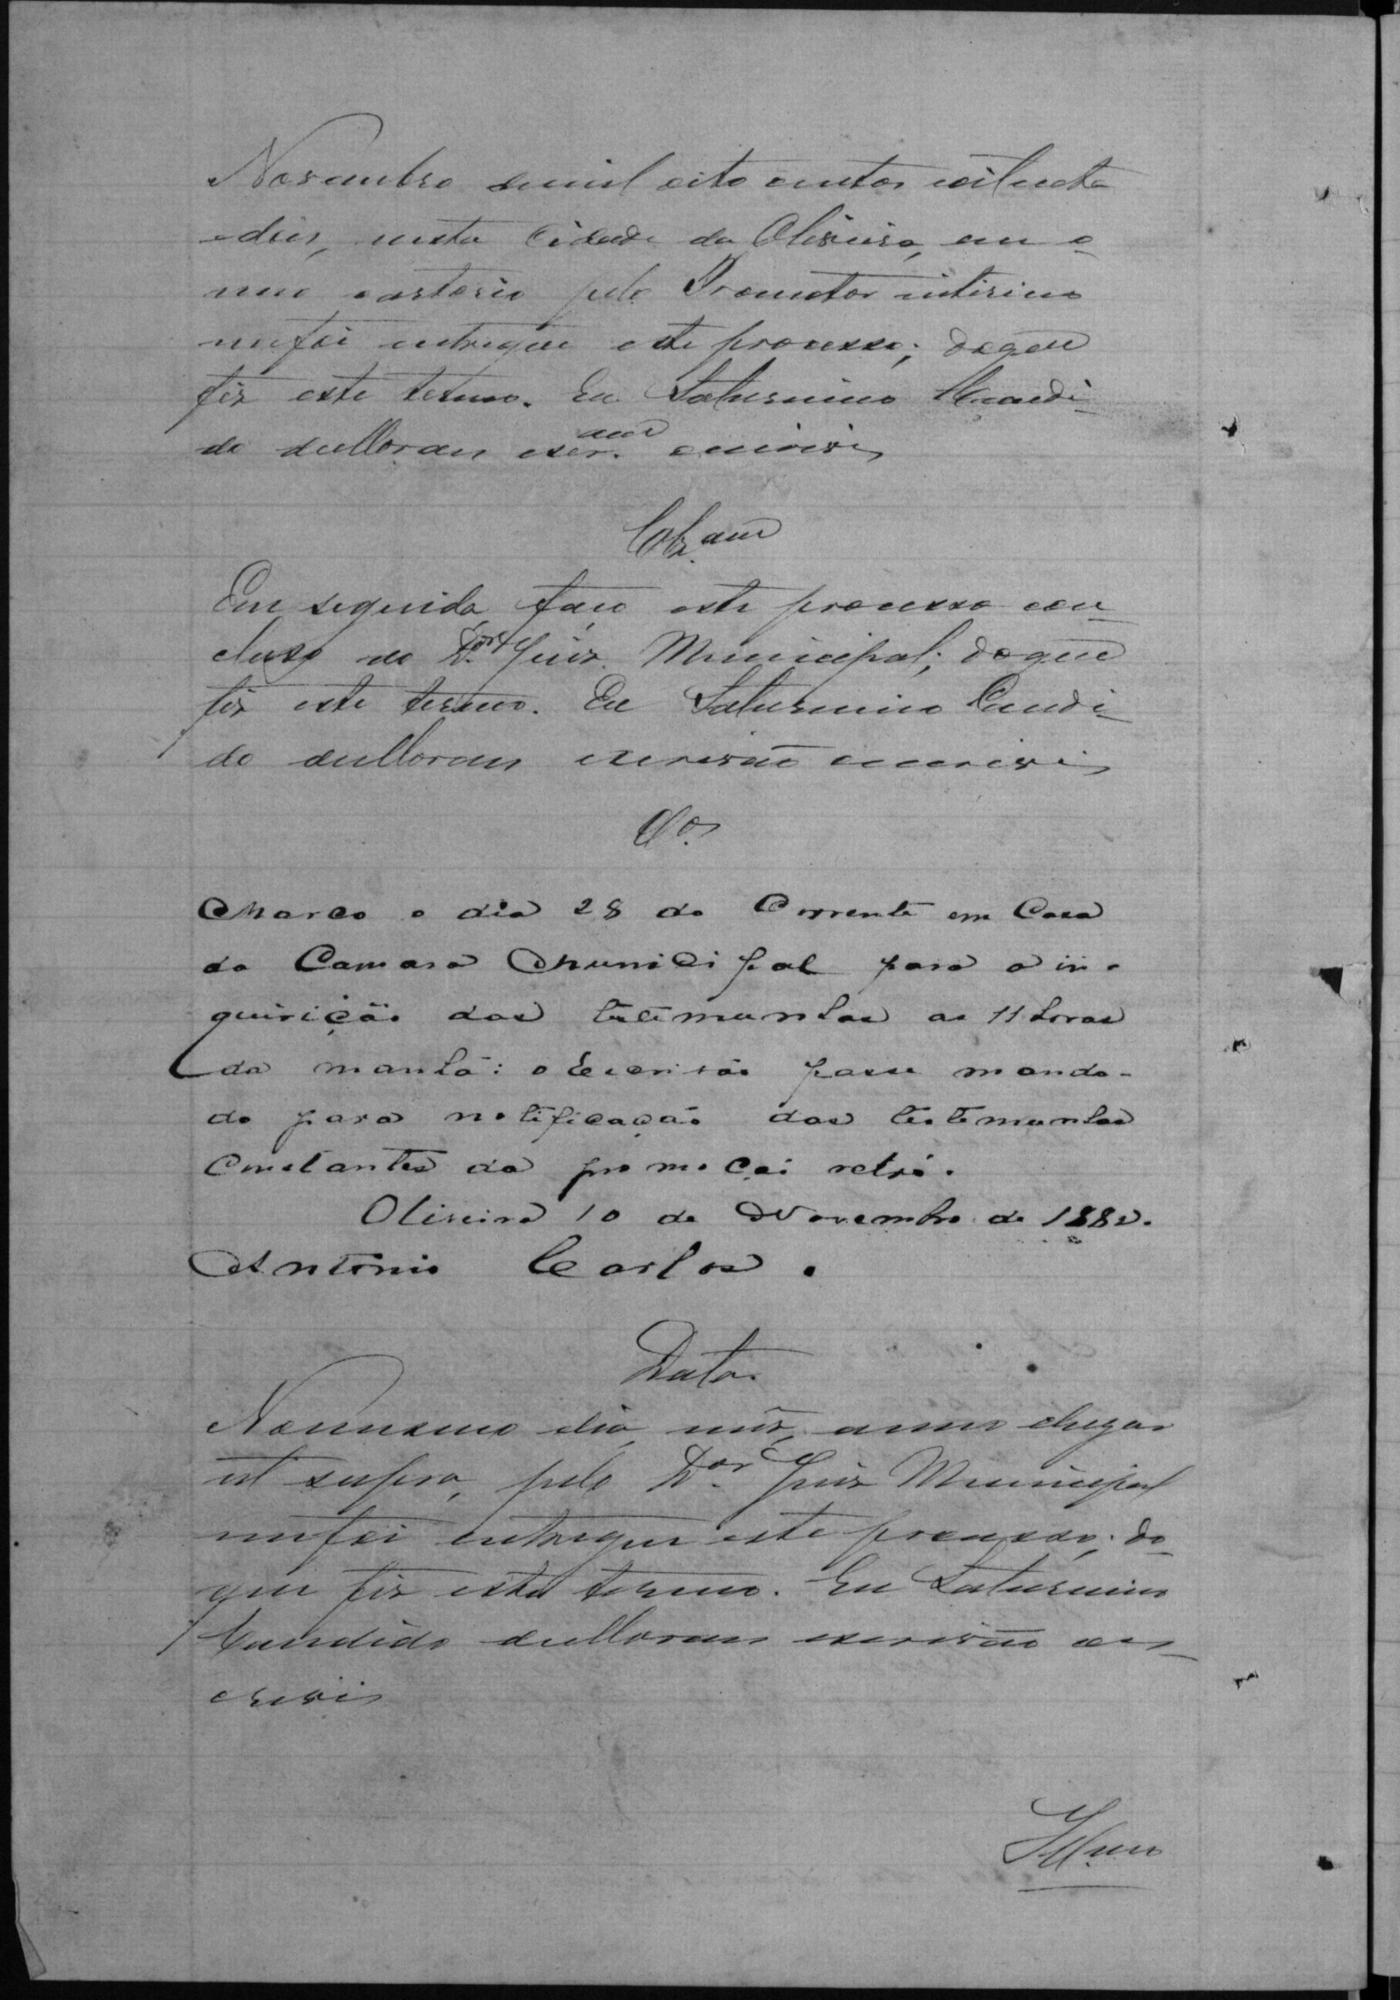 Novembro demil oito centos eoitenta
edois, nesta Cidade da Oliveira, em o
meu cartorio pelo Promotor interino
mefoi entregue este processo; doque
fiz este termo. Eu Saturnino Candi-
do deMoraes escr.am escrivi
Clz.am
Em seguida faço este processo con-
cluso ao Dor Juiz Municipal; doque
fiz este termo. Eu Saturnino Candi-
do deMoraes escrivão escrevi
Clos
Marco o dia 28 do Corrente em Casa
da Camara Municipal para a in-
quirição das testemunhas as 11 horas
da manhã: o Escrivão passe manda-
do para notificação das testemunhas
Constantes da promoção retró.
Oliveira 10 de Novembro de 1882.
Antonio Carlos.
Data
Nomesmo dia, mez, anno elugar
ut supra, pelo Dor Juiz Municipal
mefoi entregue este processo; do
que fiz este termo. Eu Saturnino
Candido deMoraes escrivão es-
crevi